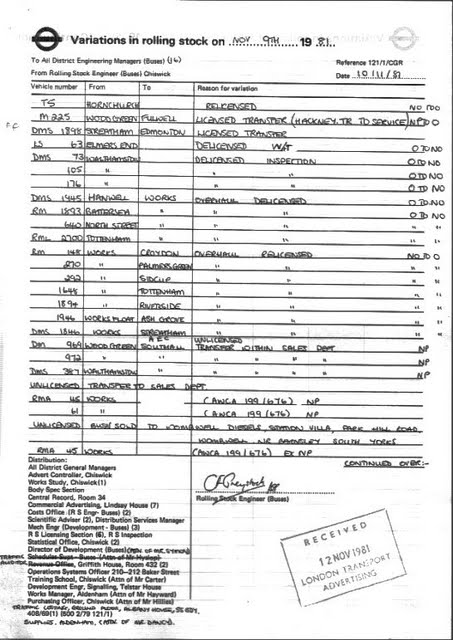 Variations in rolling stock on NOV 9TH 1981.
To All District Engineering Managers (Buses) (16)
Reference 121/1/CGR
From Rolling Stock Engineer (Buses) Chiswick
Date 10/11/81
Vehicle number From To Reason for variation
TS HORNCHURCH RELICENSED NO TO O
M 225 WOOD GREEN FULWELL LICENSED TRANSFER (HACKNEY. TR TO SERVICE) NP TO O
DMS 1898 STREATHAM EDMONTON LICENSED TRANSFER
LS 63 ELMERS END DELICENSED W/A O TO NO
DMS 73 WALTHAMSTOW DELICENSED INSPECTION O TO NO
105 " " " O TO NO
176 " " " O TO NO
DMS 1945 HANWELL WORKS OVERHAUL DELICENSED O TO NO
RM 1893 BATTERSEA " " " O TO NO
640 NORTH STREET " " " " "
RML 2700 TOTTENHAM " " " " "
RM 148 WORKS CROYDON OVERHAUL RELICENSED NO TO O
270 " PALMERS GREEN " " " "
292 " SIDCUP " " " "
1648 " TOTTENHAM " " " "
1894 " RIVERSIDE " " " "
1946 WORKS FLOAT ASH GROVE " " " "
DMS 1846 WORKS STREATHAM " " " "
DM 969 WOOD GREEN AEC SOUTHALL UNLICENSED TRANSFER WITHIN SALES DEPT NP
972 " " " " " " NP
DMS 387 WALTHAMSTOW " " " " " NP
UNLICENSED TRANSFER TO SALES DEPT.
RMA 45 WORKS (AWCA 199/676) NP
61 " (AWCA 199/676) NP
UNLICENSED BUSES SOLD TO WOMBWELL DIESELS, STATION VILLA, PARK HILL ROAD,
WOMBWELL NR BARNSLEY SOUTH YORKS
RMA 45 WORKS (AWCA 199/676) EX NP
CONTINUED OVER:-
Distribution:
All District General Managers
Advert Controller, Chiswick
Works Study, Chiswick(1)
Body Spec Section
Central Record, Room 34
Commercial Advertising, Lindsay House (7)
Costs Office (R S Engr- Buses) (2)
Scientific Adviser (2), Distribution Services Manager
Mech Engr (Development - Buses) (3)
R S Licensing Section (6), R S Inspection
Statistical Office, Chiswick (2)
Director of Development (Buses)
Schedules Supt - Buses (Attn of Mr Hyslop)
Revenue Office, Griffith House, Room 432 (2)
Operations Systems Officer 210-212 Baker Street
Training School, Chiswick (Attn of Mr Carter)
Development Engr, Signalling, Telstar House
Works Manager, Aldenham (Attn of Mr Hayward)
Purchasing Officer, Chiswick (Attn of Mr Hillies)
408/69(1) (500 2/79 121/1)
Rolling Stock Engineer (Buses)
RECEIVED
12 NOV 1981
LONDON TRANSPORT
ADVERTISING